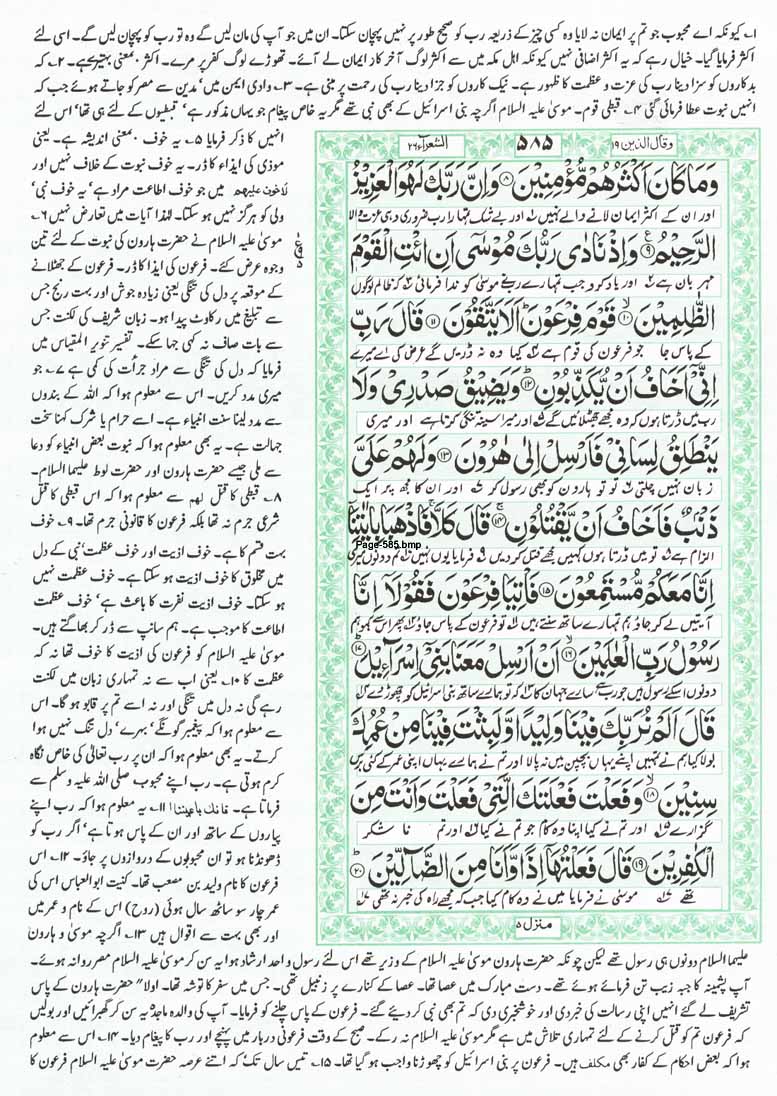 ۱؎ کیونکہ اے محبوب جو تم پر ایمان نہ لایا وہ کسی چیز کے ذریعہ رب کو صحیح طور پر نہیں پہچان سکتا۔ ان میں جو آپ کی مان لیں گے وہ تو رب کو پہچان لیں گے۔ اسی لئے
اکثر فرمایا گیا۔ خیال رہے کہ یہ اکثر اضافی نہیں کیونکہ اہل مکہ میں سے اکثر لوگ آخر کار ایمان لے آئے۔ تھوڑے لوگ کفر پر مرے۔ اکثر بمعنی بہتیرے ہے۔ ۲؎ کہ
بدکاروں کو سزا دینا رب کی عزت و عظمت کا ظہور ہے۔ نیک کاروں کو جزا دینا رب کی رحمت پر مبنی ہے۔ ۳؎ وادی ایمن میں' مدین سے مصر کو جاتے ہوئے جب کہ
انہیں نبوت عطا فرمائی گئی ۴؎ قبطی قوم۔ موسیٰ علیہ السلام اگرچہ بنی اسرائیل کے بھی نبی تھے مگر یہ خاص پیغام جو یہاں مذکور ہے' قبطیوں کے لئے ہی تھا' اس لئے
وقال الذین ۱۹
۵۸۵
الشعرآء ۲۶
وَمَا كَانَ اَكْثَرُهُمْ مُّؤْمِنِيْنَ ۸ وَاِنَّ رَبَّكَ لَهُوَ الْعَزِيْزُ
اور ان کے اکثر ایمان لانے والے نہیں ۱؎ اور بے شک تمہارا رب ضرور وہی عزت والا
الرَّحِيْمُ ۹ وَاِذْ نَادٰى رَبُّكَ مُوْسٰٓى اَنِ ائْتِ الْقَوْمَ
مہربان ہے ۲؎ اور یاد کرو جب تمہارے رب نے موسیٰ کو ندا فرمائی ۳؎ کہ ظالم لوگوں
الظّٰلِمِيْنَ ۱۰ قَوْمَ فِرْعَوْنَ اَلَا يَتَّقُوْنَ ۱۱ قَالَ رَبِّ
کے پاس جا جو فرعون کی قوم ہے ۴؎ کیا وہ نہ ڈریں گے عرض کی اے میرے
اِنِّيْٓ اَخَافُ اَنْ يُّكَذِّبُوْنِ ۱۲ وَيَضِيْقُ صَدْرِيْ وَلَا
رب میں ڈرتا ہوں کہ وہ مجھے جھٹلائیں گے ۵؎ اور میرا سینہ تنگی کرتا ہے اور میری
يَنْطَلِقُ لِسَانِيْ فَاَرْسِلْ اِلٰى هٰرُوْنَ ۱۳ وَلَهُمْ عَلَيَّ
زبان نہیں چلتی ۶؎ تو تو ہارون کو بھی رسول کر ۷؎ اور ان کا مجھ پر ایک
ذَنْۢبٌ فَاَخَافُ اَنْ يَّقْتُلُوْنِ ۱۴ قَالَ كَلَّا فَاذْهَبَا بِاٰيٰتِنَآ
Page-585.bmp
الزام ہے ۸؎ تو میں ڈرتا ہوں کہیں مجھے قتل کر دیں ۹؎ فرمایا یوں نہیں تم دونوں میری
اِنَّا مَعَكُمْ مُّسْتَمِعُوْنَ ۱۵ فَاْتِيَا فِرْعَوْنَ فَقُوْلَآ اِنَّا
آیتیں لے کر جاؤ ہم تمہارے ساتھ سنتے ہیں ۱۱؎ تو فرعون کے پاس جاؤ ۱۲؎ پھر اس سے کہو ہم
رَسُوْلُ رَبِّ الْعٰلَمِيْنَ ۱۶ اَنْ اَرْسِلْ مَعَنَا بَنِيْٓ اِسْرَآءِيْلَ ۱۷
دونوں اسکے رسول ہیں جو رب ہے سارے جہان کا کہ تو ہمارے ساتھ بنی اسرائیل کو چھوڑ دے
قَالَ اَلَمْ نُرَبِّكَ فِيْنَا وَلِيْدًا وَّلَبِثْتَ فِيْنَا مِنْ عُمُرِكَ
بولا کیا ہم نے تمہیں اپنے یہاں بچپن میں نہ پالا اور تم نے ہمارے یہاں اپنی عمر کے کئی برس
سِنِيْنَ ۱۸ وَفَعَلْتَ فَعْلَتَكَ الَّتِيْ فَعَلْتَ وَاَنْتَ مِنَ
گزارے ۱۵؎ اور تم نے کیا اپنا وہ کام جو تم نے کیا اور تم نا شکر
الْكٰفِرِيْنَ ۱۹ قَالَ فَعَلْتُهَآ اِذًا وَّاَنَا مِنَ الضَّآلِّيْنَ ۲۰
تھے موسیٰ نے فرمایا میں نے وہ کام کیا جب کہ مجھے راہ کی خبر نہ تھی
منزل ۵
انہیں کا ذکر فرمایا ۵؎ یہ خوف بمعنی اندیشہ ہے۔ یعنی
موذی کی ایذاء کا ڈر۔ یہ خوف نبوت کے خلاف نہیں اور
لاخوف علیہم میں جو خوف اطاعت مراد ہے' یہ خوف نبی'
ولی کو ہرگز نہیں ہو سکتا۔ لہٰذا آیات میں تعارض نہیں ۶؎
موسیٰ علیہ السلام نے حضرت ہارون کی نبوت کے لئے تین
وجوہ عرض کئے۔ فرعون کی ایذا کا ڈر۔ فرعون کے جھٹلانے
کے موقعہ پر دل کی تنگی یعنی زیادہ جوش اور بہت رنج جس
سے تبلیغ میں رکاوٹ پیدا ہو۔ زبان شریف کی لکنت جس
سے بات صاف نہ کہی جا سکے۔ تفسیر تنویر المقیاس میں
فرمایا کہ دل کی تنگی سے مراد جرأت کی کمی ہے ۷؎ جو
میری مدد کریں۔ اس سے معلوم ہوا کہ اللہ کے بندوں
سے مدد لینا سنت انبیاء ہے۔ اسے حرام یا شرک کہنا سخت
جہالت ہے۔ یہ بھی معلوم ہوا کہ نبوت بعض انبیاء کو دعا
سے ملی جیسے حضرت ہارون اور حضرت لوط علیہما السلام۔
۸؎ قبطی کا قتل لہم سے معلوم ہوا کہ اس قبطی کا قتل
شرعی جرم نہ تھا بلکہ فرعون کا قانونی جرم تھا۔ ۹؎ خوف
بہت قسم کا ہے۔ خوف اذیت اور خوف عظمت' نبی کے دل
میں مخلوق کا خوف اذیت ہو سکتا ہے۔ خوف عظمت نہیں
ہو سکتا۔ خوف اذیت نفرت کا باعث ہے' خوف عظمت
اطاعت کا موجب ہے۔ ہم سانپ سے ڈر کر بھاگتے ہیں۔
موسیٰ علیہ السلام کو فرعون کی اذیت کا خوف تھا نہ کہ
عظمت کا ۱۰؎ یعنی اب سے نہ تمہاری زبان میں لکنت
رہے گی نہ دل میں تنگی اور نہ اسے تم پر قابو ہو گا۔ اس
سے معلوم ہوا کہ پیغمبر گونگے' بہرے' دل تنگ نہیں ہوا
کرتے۔ یہ بھی معلوم ہوا کہ ان پر رب تعالیٰ کی خاص نگاہ
کرم ہوتی ہے۔ رب اپنے محبوب صلی اللہ علیہ وسلم سے
فرماتا ہے۔ فانک باعیننا ۱۱؎ یہ معلوم ہوا کہ رب اپنے
پیاروں کے ساتھ اور ان کے پاس ہوتا ہے' اگر رب کو
ڈھونڈنا ہو تو ان محبوبوں کے دروازوں پر جاؤ۔ ۱۲؎ اس
فرعون کا نام ولید بن مصعب تھا۔ کنیت ابوالعباس اس کی
عمر چار سو ساٹھ سال ہوئی (روح) اس کے نام و عمر میں
اور بھی بہت سے اقوال ہیں ۱۳؎ اگرچہ موسیٰ و ہارون
علیہما السلام دونوں ہی رسول تھے لیکن چونکہ حضرت ہارون موسیٰ علیہ السلام کے وزیر تھے اس لئے رسول واحد ارشاد ہوا یہ سن کر موسیٰ علیہ السلام مصر روانہ ہوئے۔
آپ پشمینہ کا جبہ زیب تن فرمائے ہوئے تھے۔ دست مبارک میں عصا تھا۔ عصا کے کنارے پر زنبیل تھی۔ جس میں سفر کا توشہ تھا۔ اولاً حضرت ہارون کے پاس
تشریف لے گئے انہیں اپنی رسالت کی خبر دی اور خوشخبری دی کہ تم بھی نبی کر دیئے گئے۔ فرعون کے پاس چلنے کو فرمایا۔ آپ کی والدہ ماجدہ یہ سن کر گھبرائیں اور بولیں
کہ فرعون تم کو قتل کرنے کے لئے تمہاری تلاش میں ہے مگر موسیٰ علیہ السلام نہ رکے۔ صبح کے وقت فرعونی دربار میں پہنچے اور رب کا پیغام دیا۔ ۱۴؎ اس سے معلوم
ہوا کہ بعض احکام کے کفار بھی مکلف ہیں۔ فرعون پر بنی اسرائیل کو چھوڑنا واجب ہو گیا تھا۔ ۱۵؎ تیس سال تک' کہ اتنے عرصہ حضرت موسیٰ علیہ السلام فرعون کا